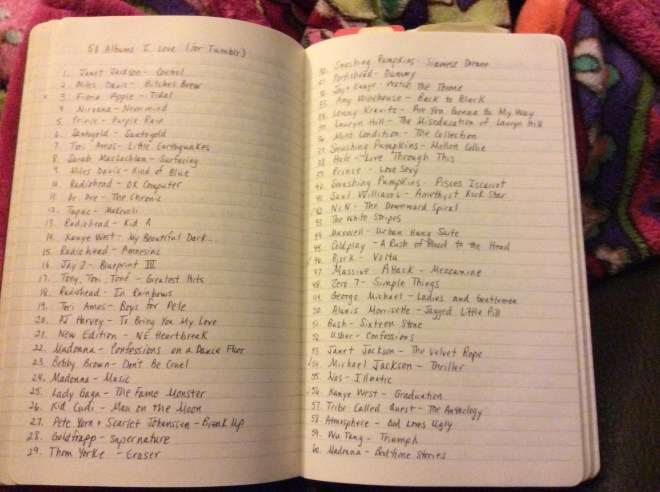 50 Albums I Love (for Tumblr)
1. Janet Jackson - Control
2. Miles Davis - Bitches Brew
3. Fiona Apple - Tidal
4. Nirvana - Nevermind
5. Prince - Purple Rain
6. Santogold - Santogold
7. Tori Amos - Little Earthquakes
8. Sarah MacLachlan - Surfacing
9. Miles Davis - Kind of Blue
10. Radiohead - OK Computer
11. Dr. Dre - The Chronic
12. Tupac - Makaveli
13. Radiohead - Kid A
14. Kanye West - My Beautiful Dark...
15. Radiohead - Amnesiac
16. Jay Z - Blueprint III
17. Tony, Toni, Toné - Greatest Hits
18. Radiohead - In Rainbows
19. Tori Amos - Boys for Pele
20. PJ Harvey - To Bring You My Love
21. New Edition - NE Heartbreak
22. Madonna - Confessions on a Dance Floor
23. Bobby Brown - Don't Be Cruel
24. Madonna - Music
25. Lady Gaga - The Fame Monster
26. Kid Cudi - Man on the Moon
27. Pete Yorn + Scarlet Johansson - Break Up
28. Goldfrapp - Supernature
29. Thom Yorke - Eraser
30. Smashing Pumpkins - Siamese Dream
31. Portishead - Dummy
32. Jay + Kanye - Watch the Throne
33. Amy Winehouse - Back to Black
34. Lenny Kravitz - Are You Gonna Go My Way
35. Lauryn Hill - The Miseducation of Lauryn Hill
36. Mint Condition - The Collection
37. Smashing Pumpkins - Mellon Collie
38. Hole - Live Through This
39. Prince - Love Sexy
40. Smashing Pumpkins - Pisces Iscariot
41. Saul Williams - Amethyst Rock Star
42. NIN - The Downward Spiral
43. The White Stripes
44. Maxwell - Urban Hang Suite
45. Coldplay - A Rush of Blood to the Head
46. Bjork - Volta
47. Massive Attack - Mezzanine
48. Zero 7 - Simple Things
49. George Michael - Ladies and Gentlemen
50. Alanis Morrisette - Jagged Little Pill
51. Bush - Sixteen Stone
52. Usher - Confessions
53. Janet Jackson - The Velvet Rope
54. Michael Jackson - Thriller
55. Nas - Illmatic
56. Kanye West - Graduation
57. Tribe Called Quest - The Anthology
58. Atmosphere - God Loves Ugly
59. Wu Tang - Triumph
60. Madonna - Bedtime Stories